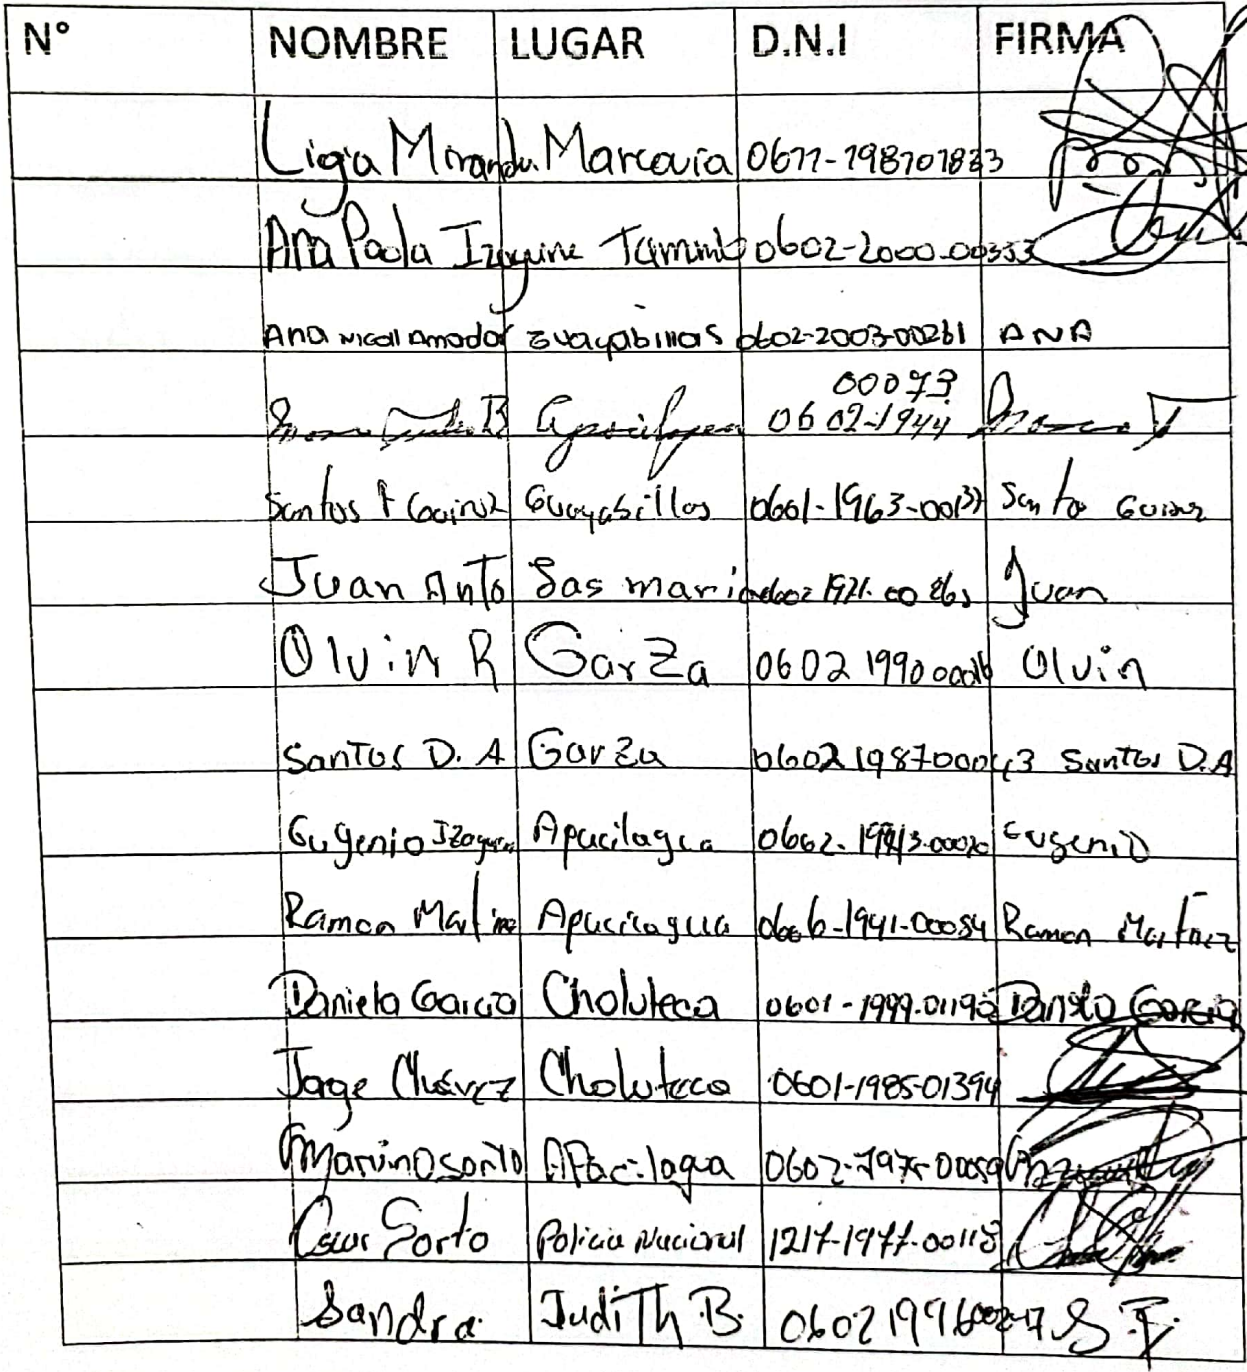 N° NOMBRE LUGAR D.N.I FIRMA
Ligia Miranda Marcovia 0611-198701833
Ana Paola Izaguirre 0602-2000-00353
Ana Nicoll Amador Guayabillas 0602-2003-00261 ANA
00073
B 0602-1944
Santos Guayabillas 0601-1963-00137 Santo
Juan Anto Juan
Olvin R Garza 0602 1990 Olvin
Santos D. A Garza 0602198700043 Santos D.A
Eugenio Apacilagua Eugenio
Ramon Martinez Apacilagua 1941-00054 Ramon Martinez
Daniela Garcia Choluteca 0601-1999-01192 Daniela Garcia
Jorge Chávez Choluteca 0601-1985-01394
Marvin Osorto Apacilagua 0602-1975-00059
Oscar Sorto Policia Nacional 1217-1977-00118
Sandra Judith B. 06021996 S